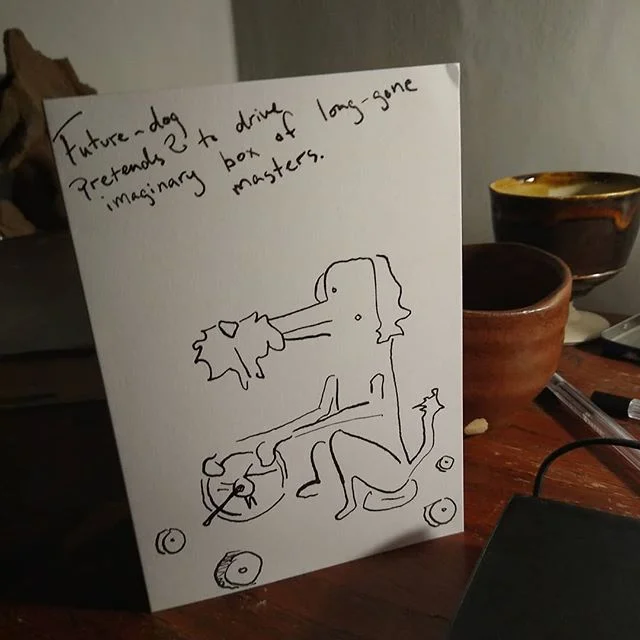 Future-dog
Pretends? to drive
imaginary box of long-gone
masters.